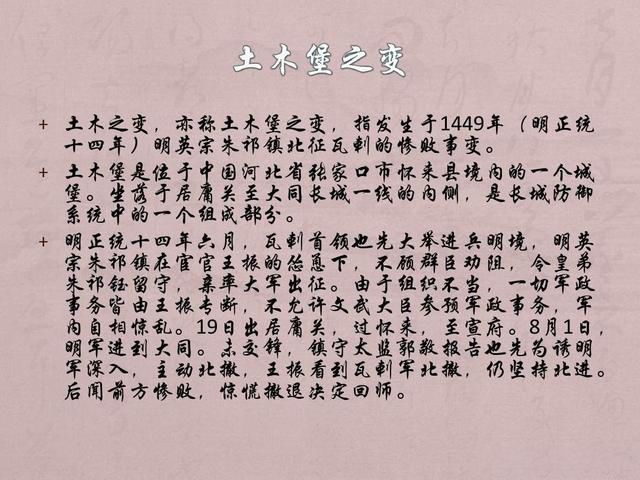 土木堡之变
+ 土木之变，亦称土木堡之变，指发生于1449年（明正统
十四年）明英宗朱祁镇北征瓦剌的惨败事变。
+ 土木堡是位于中国河北省张家口市怀来县境内的一个城
堡。坐落于居庸关至大同长城一线的内侧，是长城防御
系统中的一个组成部分。
+ 明正统十四年六月，瓦剌首领也先大举进兵明境，明英
宗朱祁镇在宦官王振的怂恿下，不顾群臣劝阻，令皇弟
朱祁钰留守，亲率大军出征。由于组织不当，一切军政
事务皆由王振专断，不允许文武大臣参预军政事务，军
内自相惊乱。19日出居庸关，过怀来，至宣府。8月1日，
明军进到大同。未交锋，镇守太监郭敬报告也先为诱明
军深入，主动北撤，王振看到瓦剌军北撤，仍坚持北进。
后闻前方惨败，惊慌撤退决定回师。